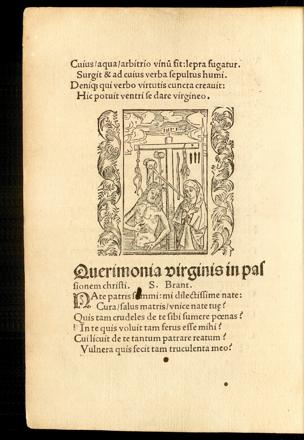 Cuius/aqua/arbitrio vinū fit:lepra fugatur.
Surgit & ad cuius verba sepultus humi.
Deniq; qui verbo virtutis cuncta creauit:
Hic potuit ventri se dare virgineo.
Querimonia virginis in pas
sionem christi. S. Brant.
NAte patris summi: mi dilectissime nate:
Cura/salus matris/vnice nate tuę?
Quis tam crudeles de te sibi sumere pœnas?
In te quis voluit tam ferus esse mihi?
Cui licuit de te tantum patrare reatum?
Vulnera quis fecit tam truculenta meo?